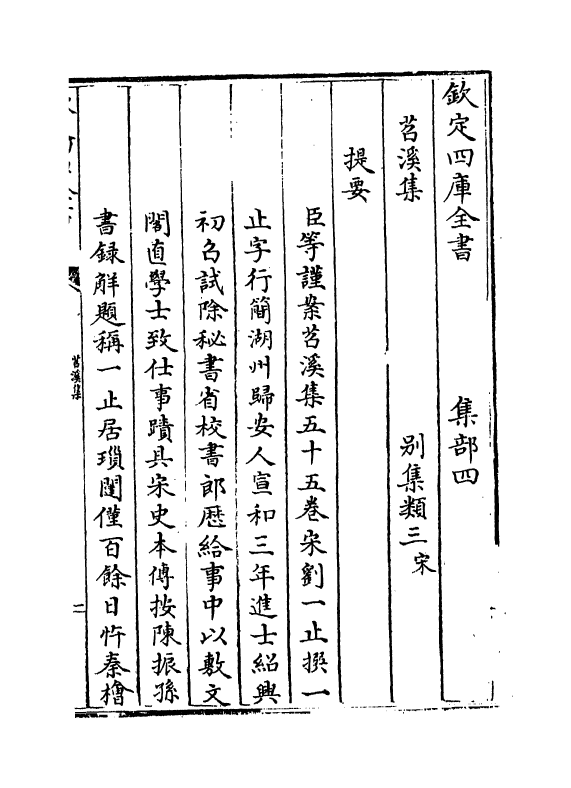 欽定四庫全書　集部四
苕溪集　别集類三宋
提要
臣等謹案苕溪集五十五卷宋劉一止撰一
止字行簡湖州歸安人宣和三年進士紹興
初召試除秘書省校書郎歴給事中以敷文
閣直學士致仕事蹟具宋史本傳按陳振孫
書録解題稱一止居瑣闥僅百餘日忤秦檜
苕溪集